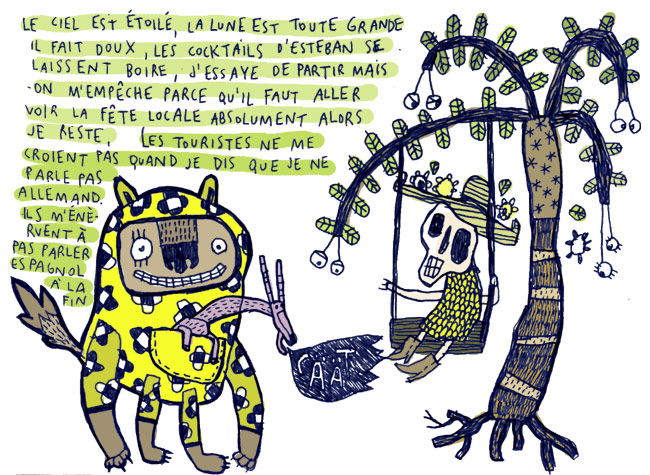 LE CIEL EST ÉTOILÉ, LA LUNE EST TOUTE GRANDE
IL FAIT DOUX, LES COCKTAILS D'ESTEBAN SE
LAISSENT BOIRE, J'ESSAYE DE PARTIR MAIS
ON M'EMPÊCHE PARCE QU'IL FAUT ALLER
VOIR LA FÊTE LOCALE ABSOLUMENT ALORS
JE RESTE, LES TOURISTES NE ME
CROIENT PAS QUAND JE DIS QUE JE NE
PARLE PAS
ALLEMAND.
ILS M'ÉNÈ-
RVENT À
PAS PARLER
ESPAGNOL
À LA
FIN
CAAT